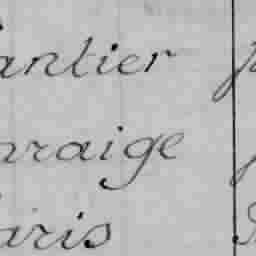 antier
araige
aris